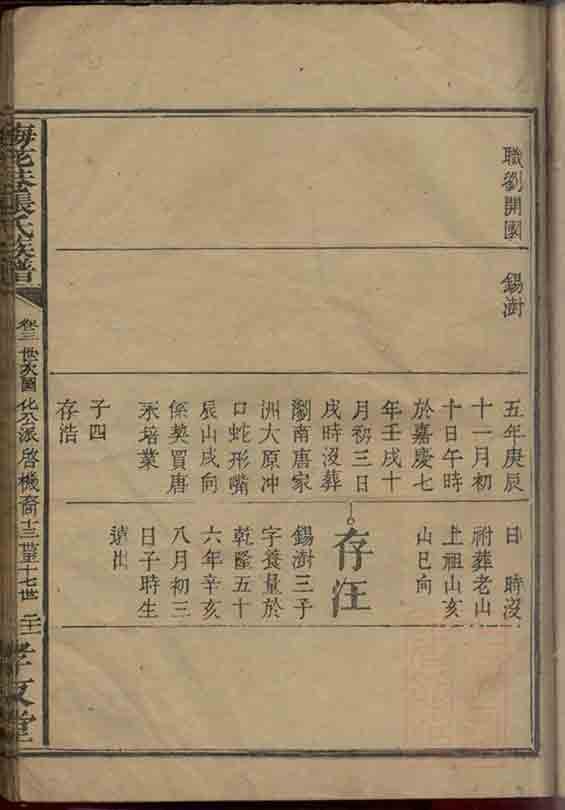 職劉開園
錫澍
五年庚辰
十一月初
十日午時
於嘉慶七
年壬戌十
月初三日
戌時沒葬
瀏南唐家
洲大原冲
口蛇形嘴
辰山戌向
係契買唐
永培業
子四
存浩
日 時沒
祔葬老山
上祖山亥
山巳向
存汪
錫澍三子
字養量於
乾隆五十
六年辛亥
八月初三
日子時生
遠出
梅花巷張氏族譜
卷三 世次圖 化公派啓機裔十三世至十七世
孝友堂